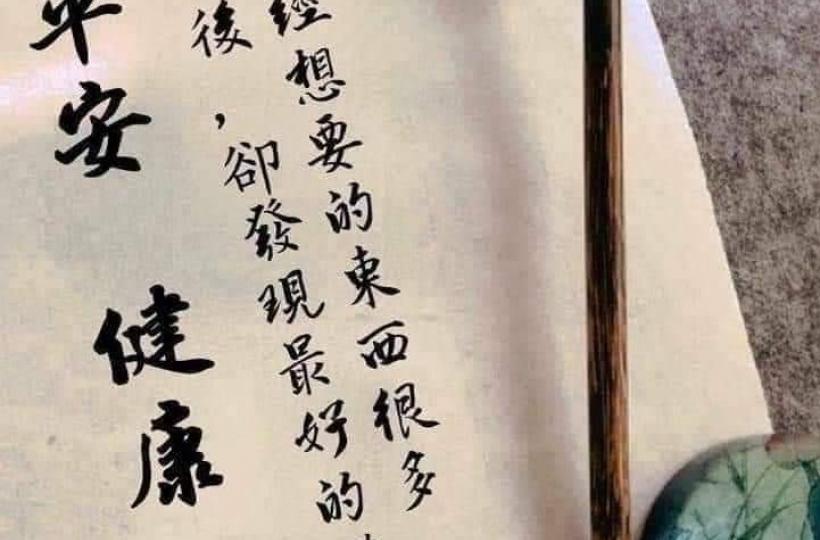 經想要的東西很多
後，卻發現最好的
平安 健康